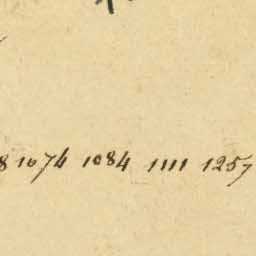 8 1074 1084 1111 1257